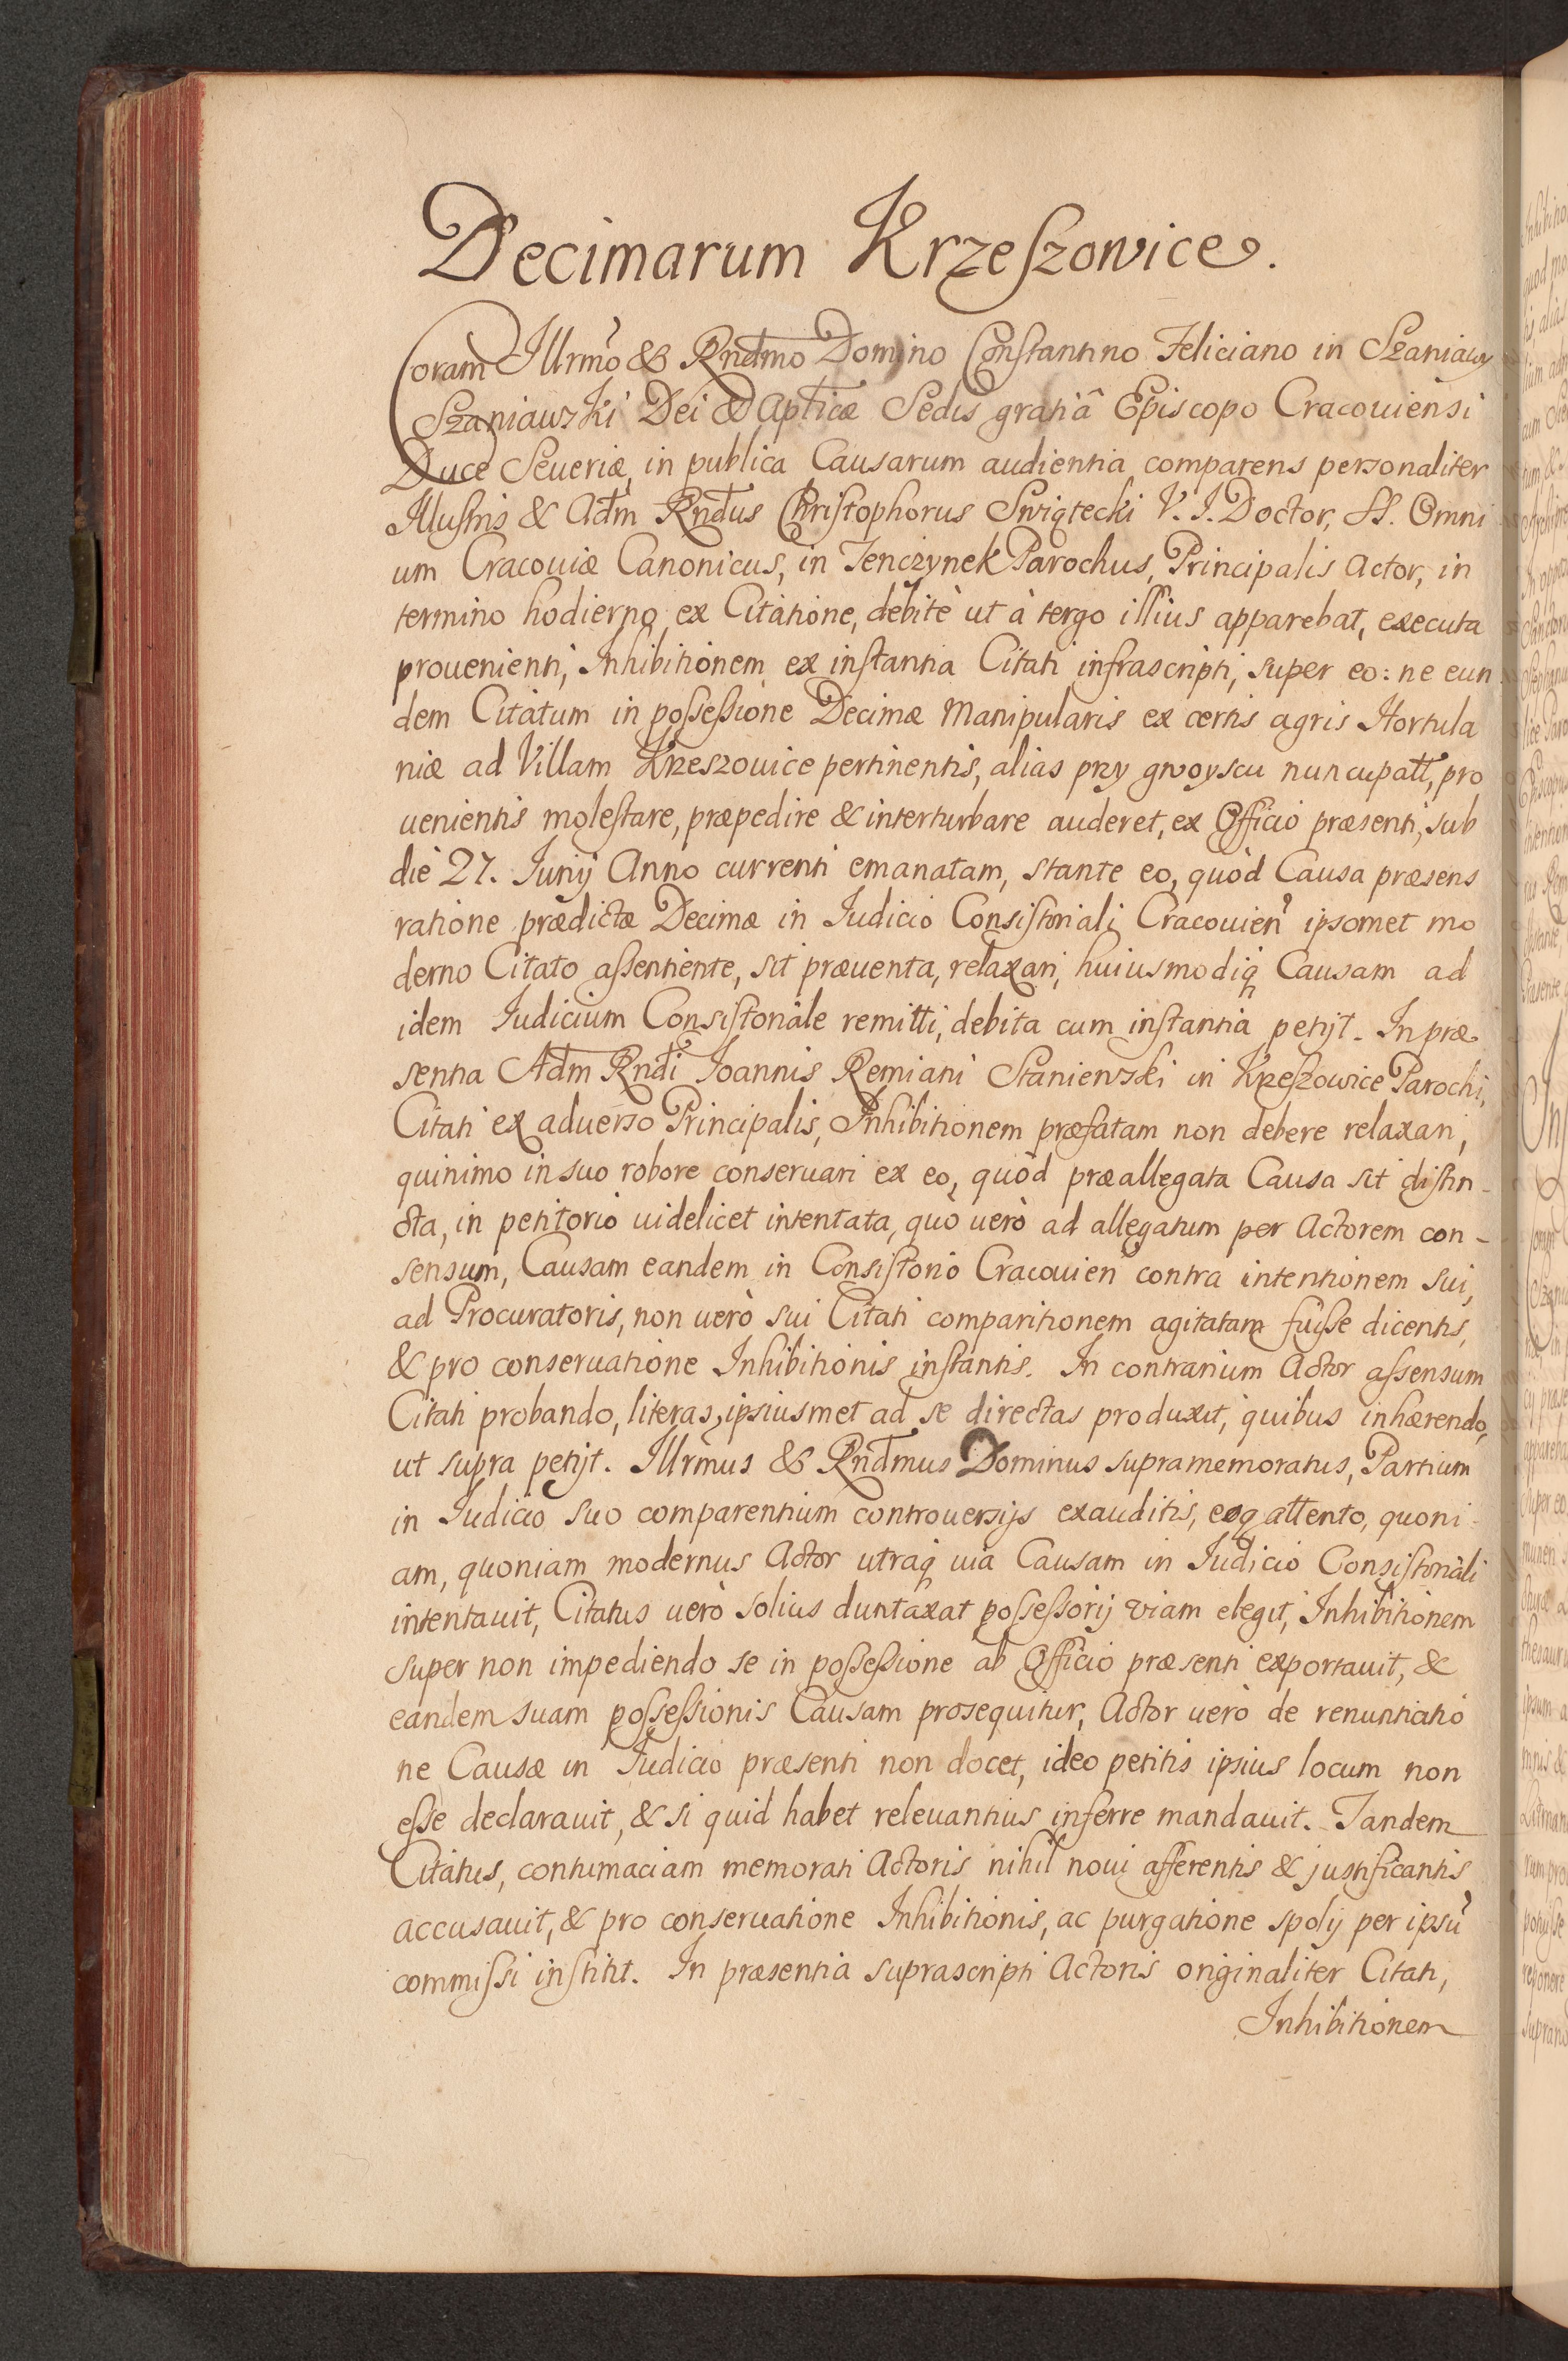 Decimarum Krzeszowice.
Coram Illrmo & Rndmo Domino Constantino Feliciano in Szaniawy
Szaniawski Dei & Apticæ Sedis gratiâ Episcopo Cracouiensi
Duce Seueriæ, in publica Causarum audientia comparens personaliter
Illustris & Adm Rndus Christophorus Swiątecki V. I. Doctor, SS. Omni
um Cracouiæ Canonicus, in Tenczynek Parochus, Principalis Actor, in
termino hodierno ex Citatione, debitè ut à tergo illius apparebat, executa
prouenienti, Inhibitionem ex instantia Citati infrascripti, super eo: ne eun
dem Citatum in possessione Decimæ Manipularis ex certis agris Hortula
niæ ad Villam Krzeszouice pertinentis, alias przy gwoyscu nuncupatt, pro
uenientis molestare, præpedire & interturbare auderet, ex Officio præsenti, sub
die 27. Iunij Anno currenti emanatam, stante eo, quòd Causa præsens
ratione prædictæ Decimæ in Iudicio Consistoriali Cracouien ipsomet mo
derno Citato assentiente, sit præuenta, relaxari, huiusmodiq Causam ad
idem Iudicium Consistoriale remitti, debita cum instantia petijt. In præ
sentia Adm Rndi Ioannis Remiani Stanienski in Krzeszowice Parochi,
Citati ex aduerso Principalis, Inhibitionem præfatam non debere relaxari,
quinimo in suo robore conseruari ex eo, quòd præallegata Causa sit distin-
cta, in petitorio uidelicet intentata, quò uerò ad allegatum per Actorem con-
sensum, Causam eandem in Consistorio Cracouien contra intentionem sui,
ad Procuratoris, non uerò sui Citati comparitionem agitatam fuisse dicentis,
& pro conseruatione Inhibitionis instantis. In contrarium Actor assensum
Citati probando, literas, ipsiusmet ad se directas produxit, quibus inhærendo,
ut supra petijt. Illrmus & Rndmus Dominus supramemoratus, Partium
in Iudicio suo comparentium controuersijs exauditis, eoq attento, quoni
am, quoniam modernus Actor utraq uia Causam in Iudicio Consistoriali
intentauit, Citatus uerò solius duntaxat possessorij viam elegit, Inhibitionem
super non impediendo se in possessione ab Officio præsenti exportauit, &
eandem suam possessionis Causam prosequitur, Actor uerò de renuntiatio
ne Causæ in Iudicio præsenti non docet, ideo petitis ipsius locum non
esse declarauit, & si quid habet releuantius inferre mandauit. Tandem
Citatus, contumaciam memorati Actoris nihil noui afferentis & justificantis
accusauit, & pro conseruatione Inhibitionis, ac purgatione spolij per ipsu
commissi institit. In præsentia suprascripti Actoris originaliter Citati,
Inhibitionem